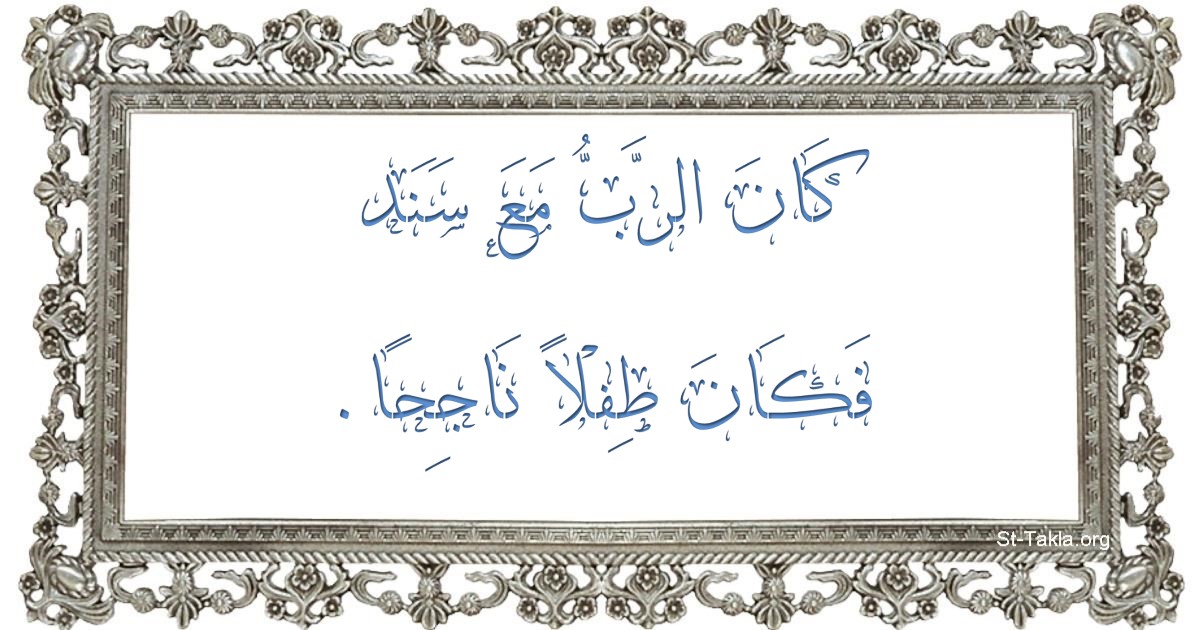 كَانَ الرَّبُّ مَعَ سَنَد
فَكَانَ طِفْلاً نَاجِحًا .
St-Takla.org